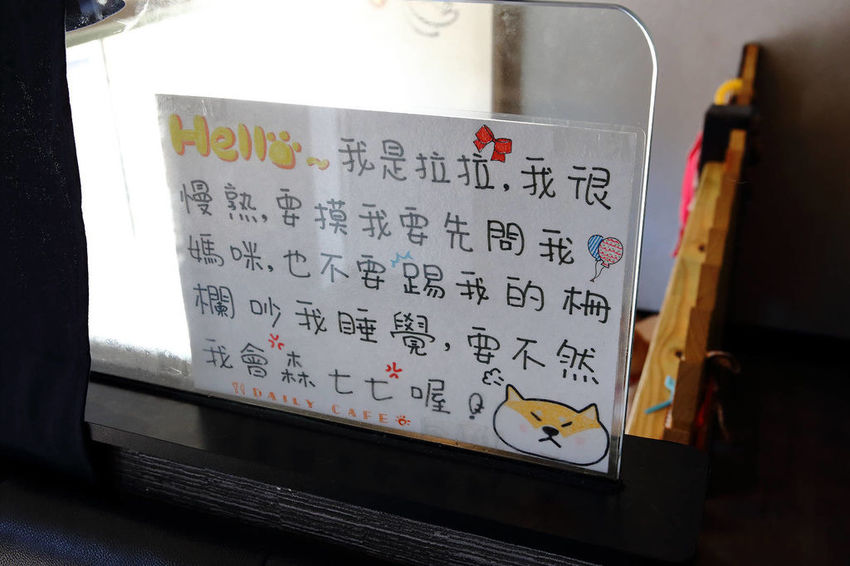 Hello~我是拉拉,我很
慢熟,要摸我要先問我
媽咪,也不要踢我的柵
欄吵我睡覺,要不然
我會森七七喔!
DAILY CAFE